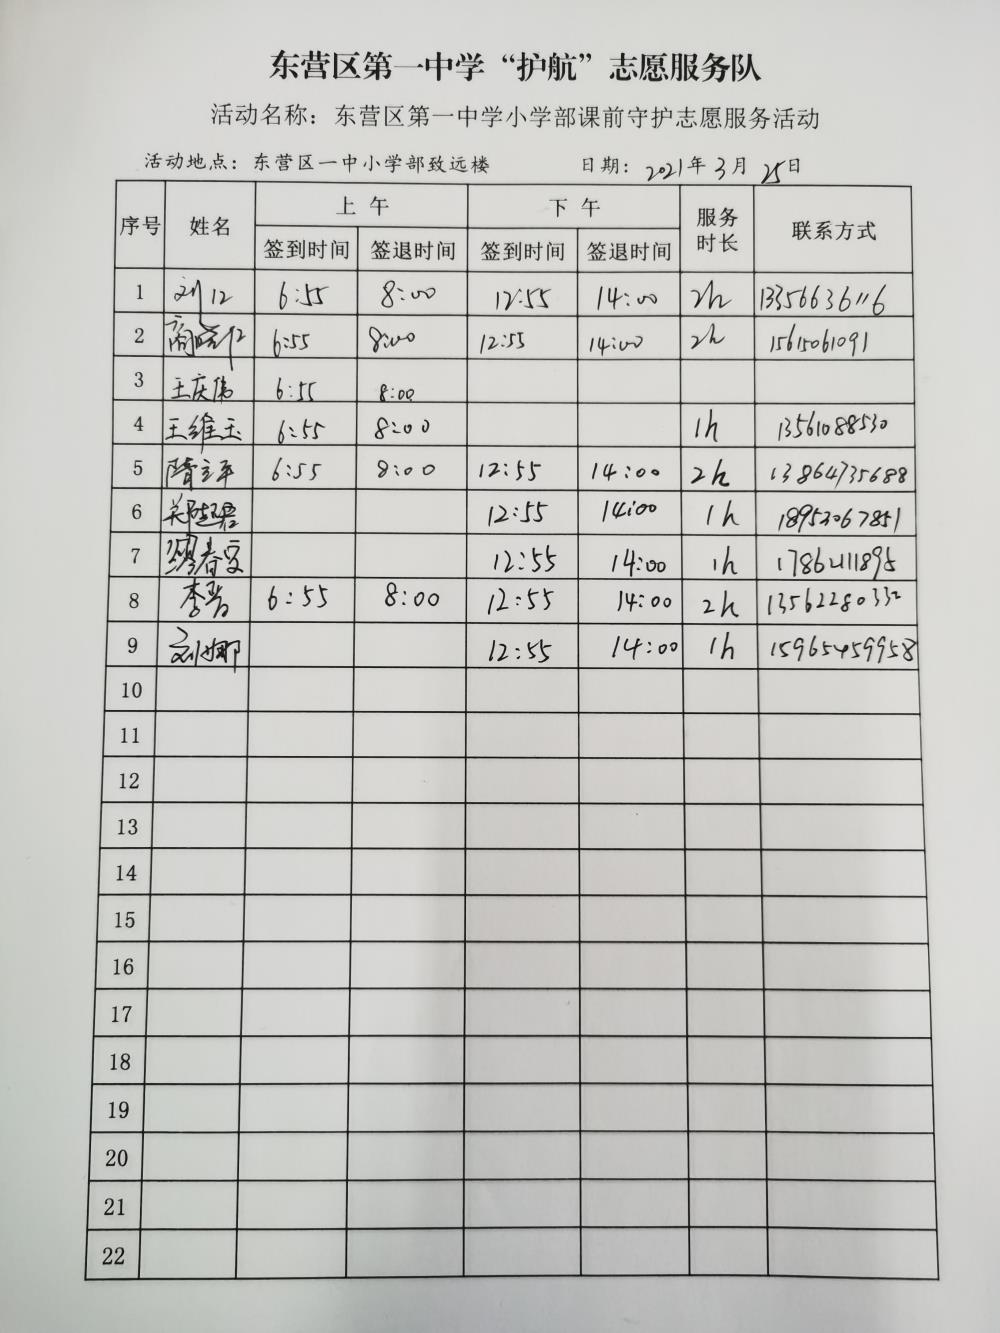 东营区第一中学“护航”志愿服务队
活动名称：东营区第一中学小学部课前守护志愿服务活动
活动地点：东营区一中小学部致远楼 日期：2021年3月25日
序号 姓名 上午 下午 服务时长 联系方式
签到时间 签退时间 签到时间 签退时间
1 刘 6:55 8:00 12:55 14:00 2h 13356636116
2 6:55 8:00 12:55 14:00 2h 15615061091
3 王庆伟 6:55 8:00
4 王维玉 6:55 8:00 1h 13561088530
5 隋立平 6:55 8:00 12:55 14:00 2h 13864735688
6 郑 12:55 14:00 1h 18953067851
7 12:55 14:00 1h
8 李 6:55 8:00 12:55 14:00 2h 13562280332
9 刘娜 12:55 14:00 1h 15965459958
10
11
12
13
14
15
16
17
18
19
20
21
22